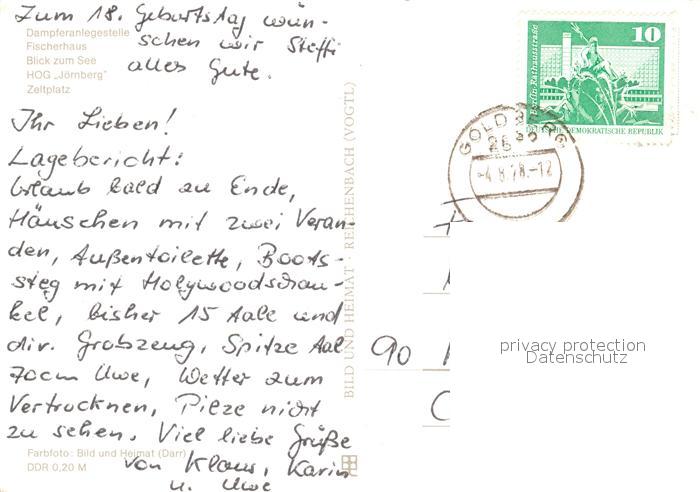 Zum 18. Geburtstag wün-
schen wir Steffi
alles Gute.
Dampferanlegestelle
Fischerhaus
Blick zum See
HOG „Jörnberg"
Zeltplatz
Ihr Lieben!
Lagebericht:
Urlaub bald zu Ende,
Häuschen mit zwei Veran-
den, Außentoilette, Boots-
steg mit Holywoodschau-
kel, bisher 15 Aale und
div. Grobzeug, Spitze Aal
70cm Uwe, Wetter zum
Vertrocknen, Pilze nicht
zu sehen. Viel liebe Grüße
von Klaus, Karin
u. Uwe
Farbfoto: Bild und Heimat (Darr)
DDR 0,20 M
BILD UND HEIMAT · REICHENBACH (VOGTL)
10
Berlin-Rathausstraße
DEUTSCHE DEMOKRATISCHE REPUBLIK
GOLDBERG
-4.8.78.-12
90
privacy protection
Datenschutz